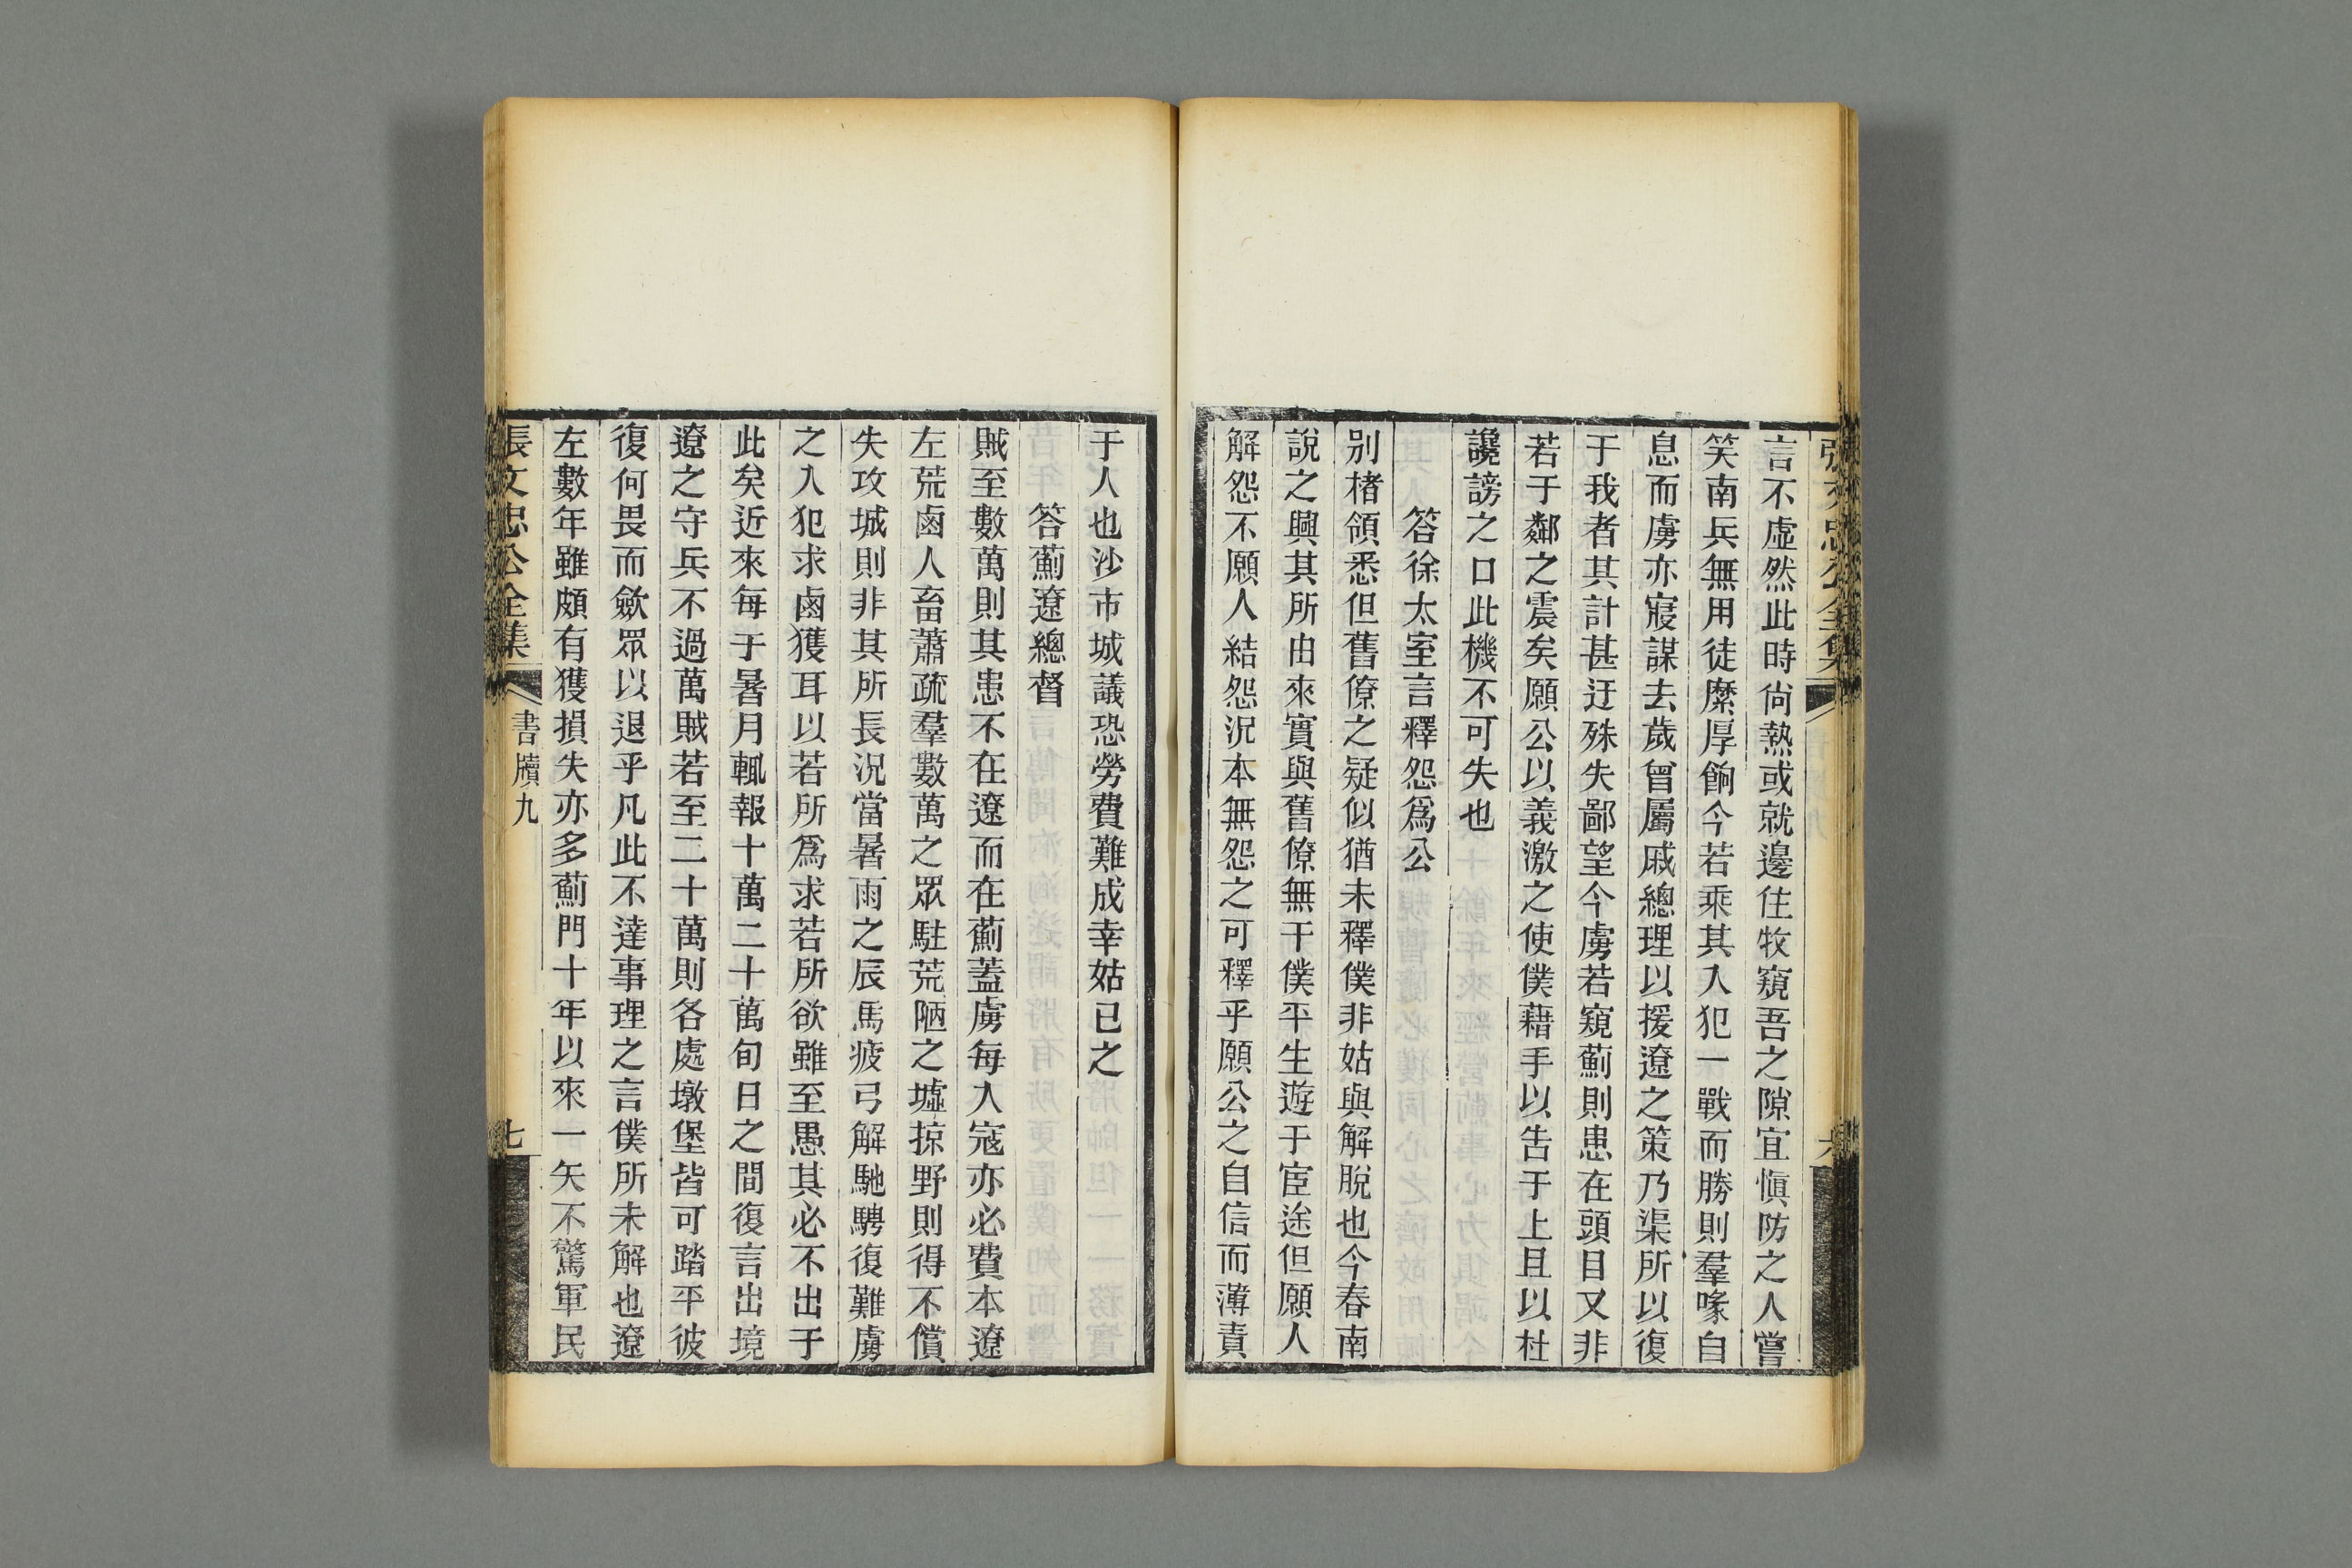 言不虛然此時尙熱或就邊住牧窺吾之隙宜愼防之人嘗
笑南兵無用徒縻厚餉今若乘其入犯一戰而勝則羣喙自
息而虜亦寢謀去歲曾屬戚總理以援遼之策乃渠所以復
于我者其計甚迂殊失鄙望今虜若窺薊則患在頭目又非
若于鄰之震矣願公以義激之使僕藉手以告于上且以杜
讒謗之口此機不可失也
答徐太室言釋怨爲公
别楮領悉但舊僚之疑似猶未釋僕非姑與解脫也今春南
說之興其所由來實與舊僚無干僕平生遊于宦途但願人
解怨不願人結怨況本無怨之可釋乎願公之自信而薄責
于人也沙市城議恐勞費難成幸姑已之
答薊遼總督
賊至數萬則其患不在遼而在薊蓋虜每入寇亦必費本遼
左荒鹵人畜蕭疏羣數萬之眾駐荒陋之墟掠野則得不償
失攻城則非其所長況當暑雨之辰馬疲弓解馳騁復難虜
之入犯求鹵獲耳以若所爲求若所欲雖至愚其必不出于
此矣近來每于暑月輒報十萬二十萬旬日之間復言出境
遼之守兵不過萬賊若至二十萬則各處墩堡皆可踏平彼
復何畏而歛眾以退乎凡此不達事理之言僕所未解也遼
左數年雖頗有獲損失亦多薊門十年以來一矢不驚軍民
張文忠公全集
書牘九
七